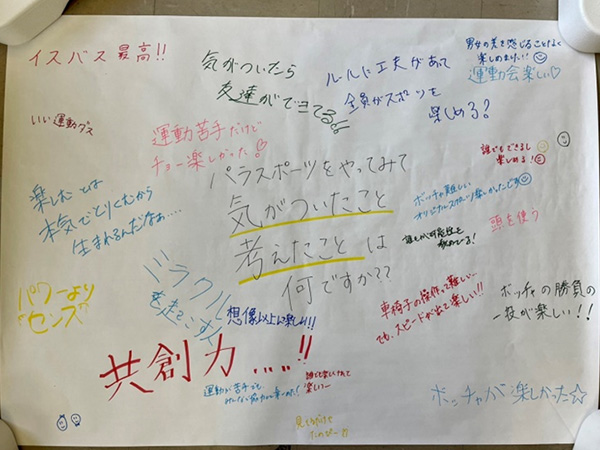 イスバス最高!!
気がついたら
友達ができてる!!
ルールに工夫があって
全員がスポーツを
楽しめる?
男女の差を感じることなく
楽しめました!!
運動会楽しい♡
いい運動グス
運動苦手だけど
チョー楽しかった!
誰でもできるし
楽しめる!
パラスポーツをやってみて
気がついたこと
考えたことは
何ですか??
楽しむとは
本気でとりくむから
生まれるんだなぁ....
ボッチャ難しい
オリジナルスポーツ楽しかったです
頭を使う
誰もが可能性を
パワーより
"センス"
ミラクル
想像以上に楽しい!!
車椅子の操作って難しい…
でも、スピードが出て楽しい!!
ボッチャの勝負の
一投が楽しい!!
共創力....!!
運動が苦手でも
楽しい…
ボッチャが楽しかった☆
見てるだけで
たのしー!!